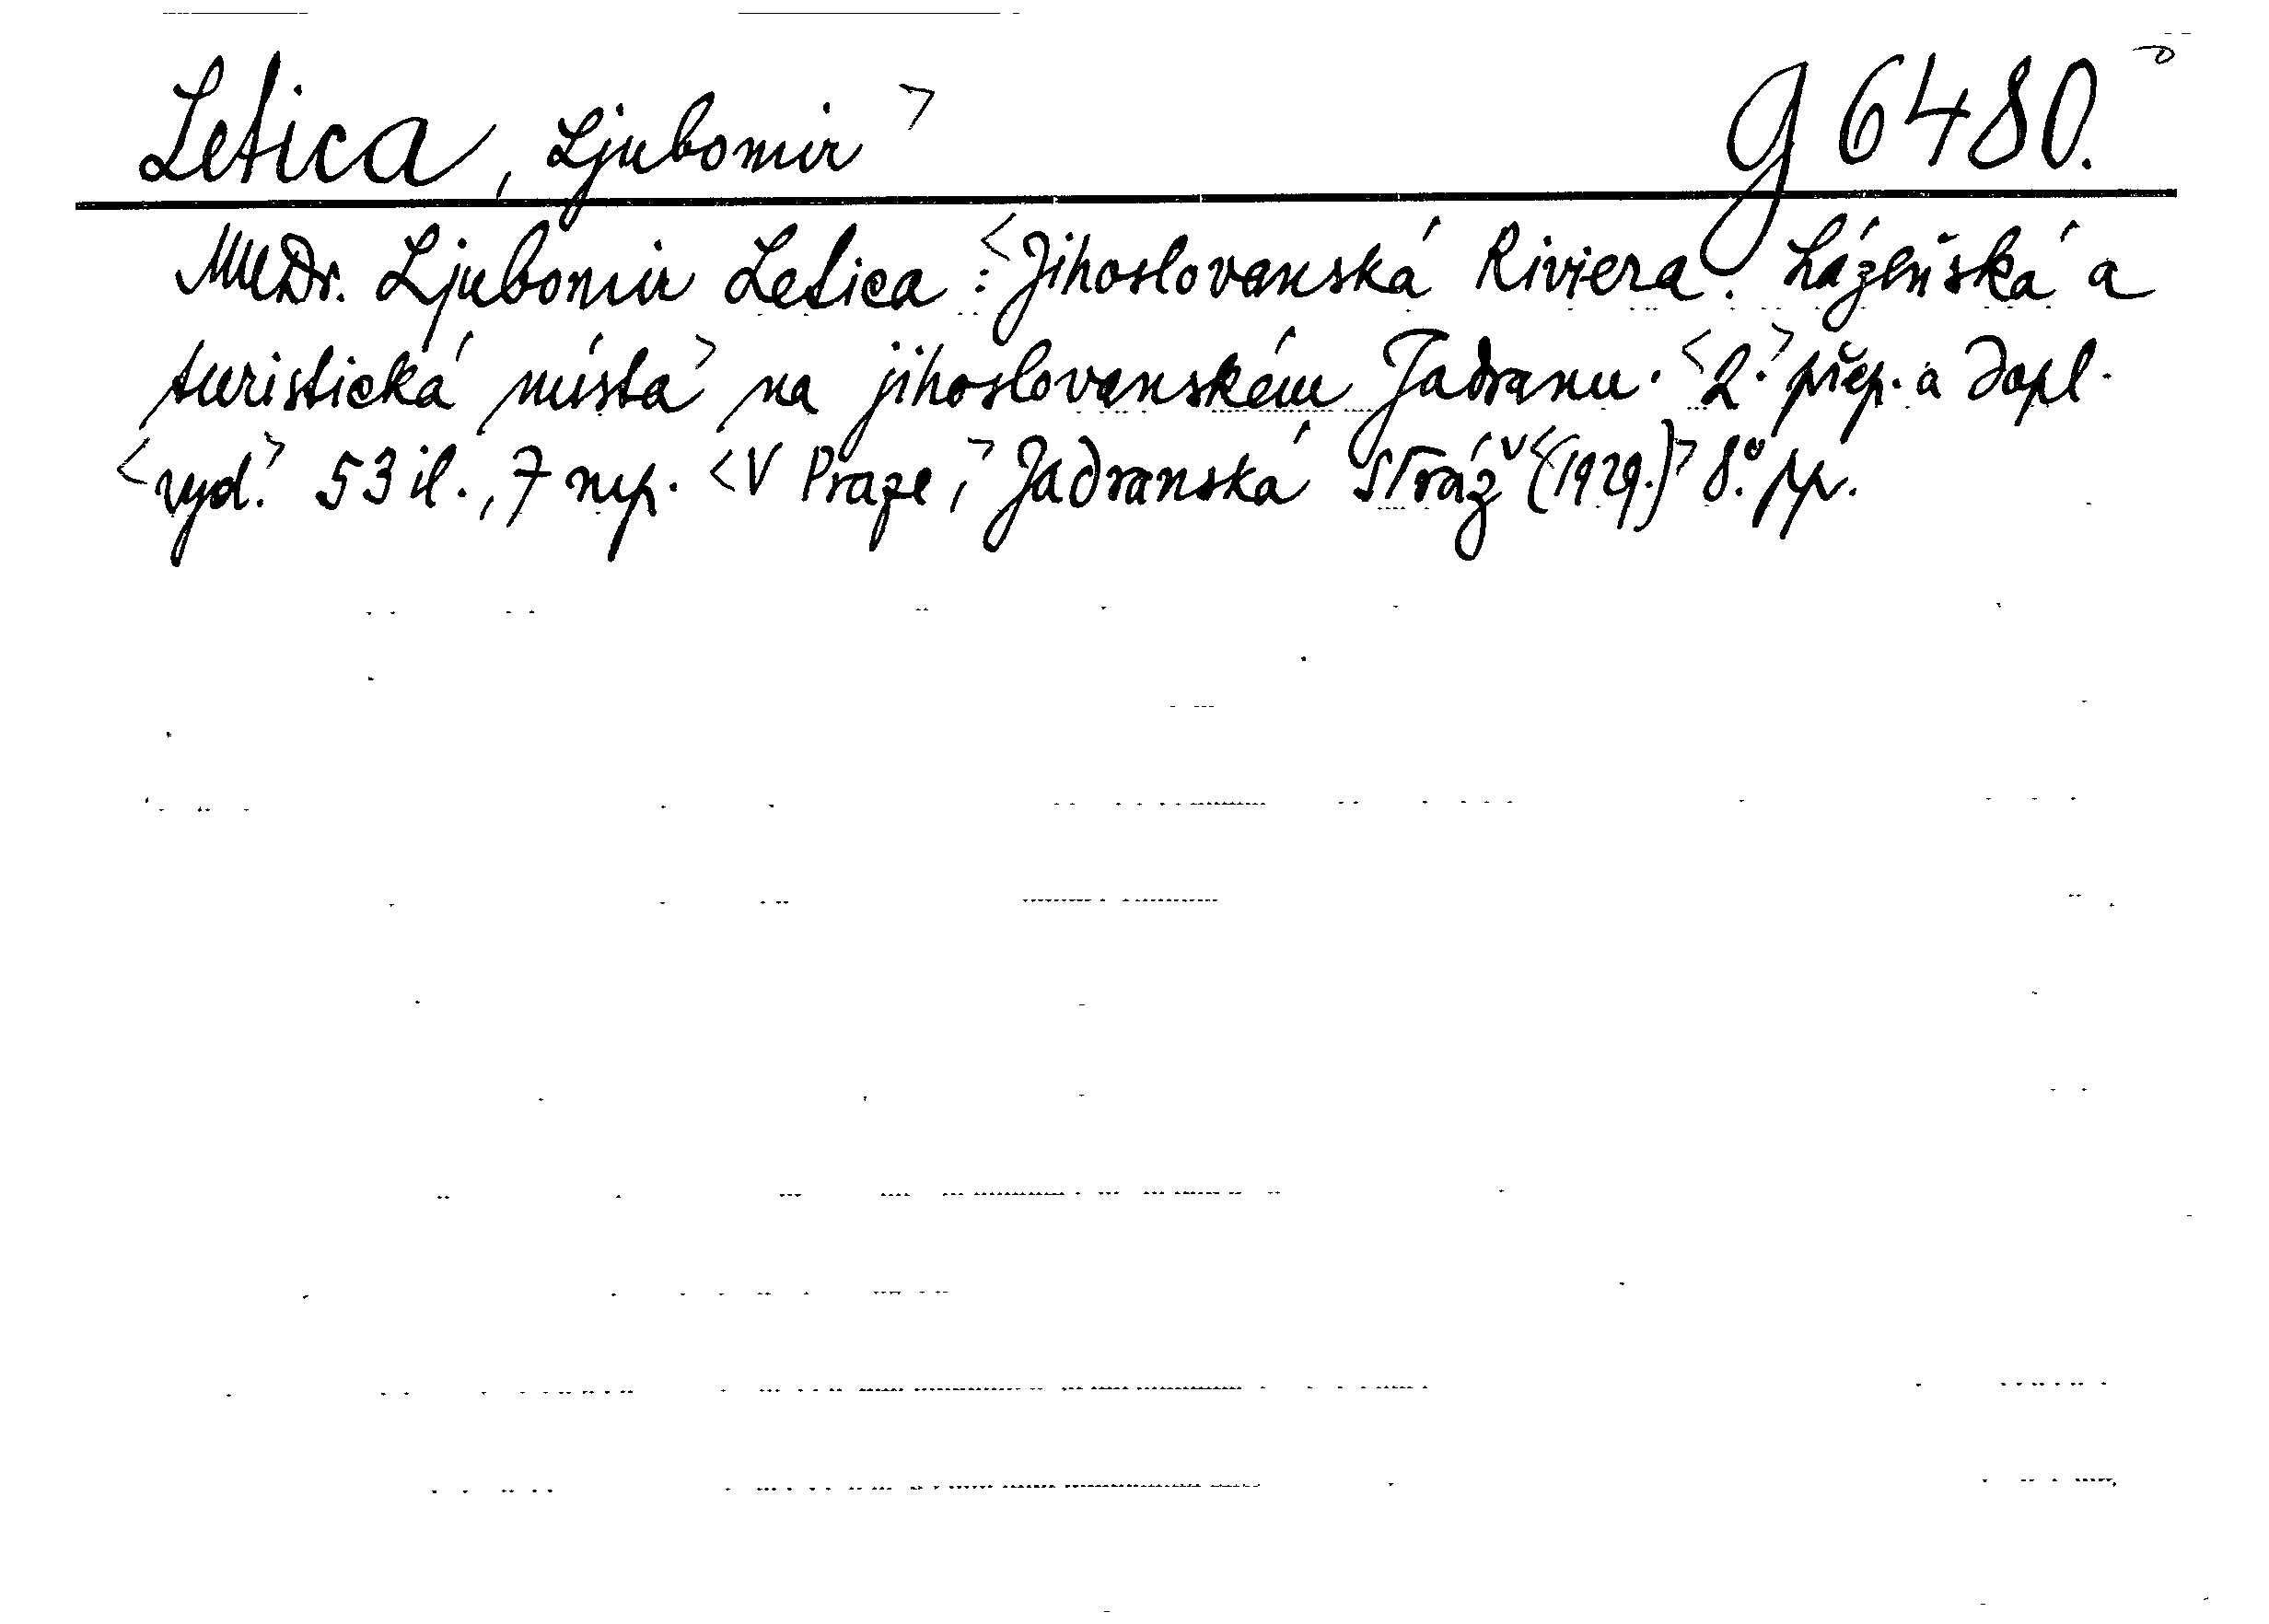 Letica, Ljubomir> g 6480.
MUDr. Ljubomir Letica: <Jihoslovanská Riviera. Lázeňská a
turistická místa> na jihoslovanském Jadranu. <2.> přep. a dopl.
<vyd.> 53 il., 7 mp. <V Praze,> Jadranská Stráž <(1929.)> 8.°